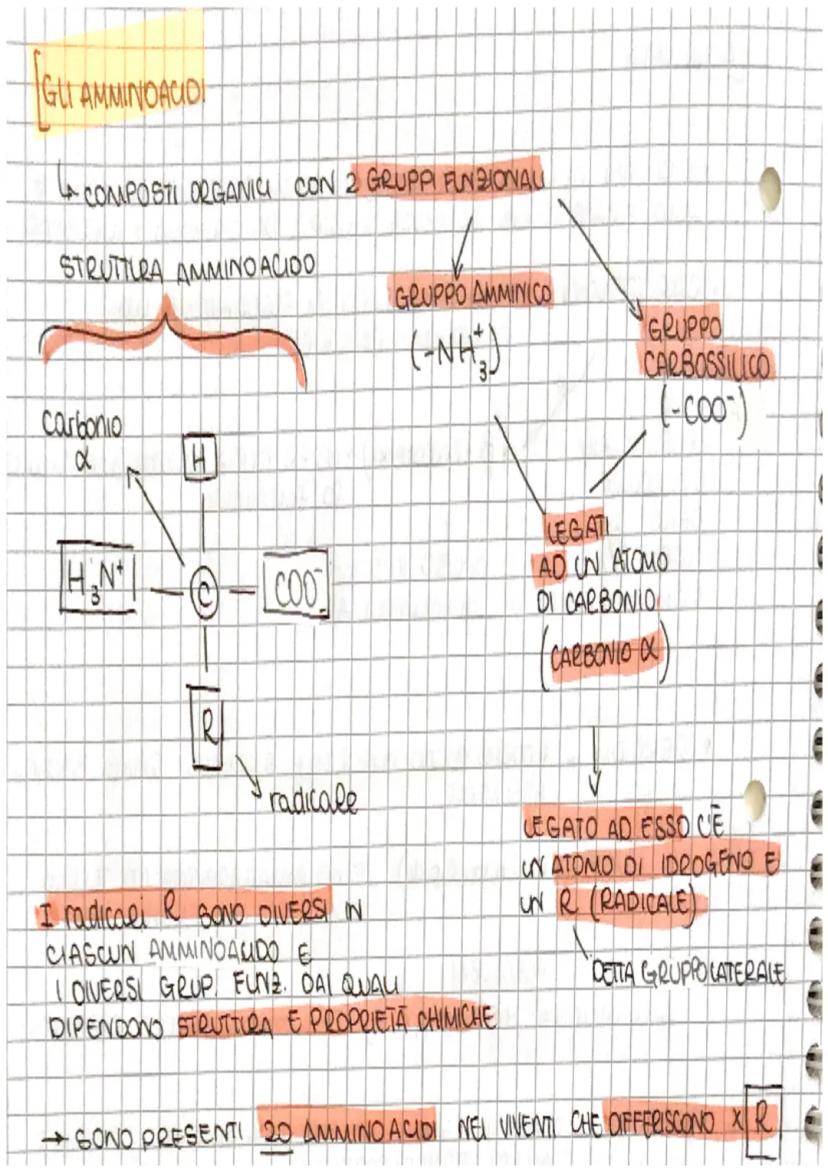 [GLI AMMINOACIDI
↳ COMPOSTI ORGANICI CON 2 GRUPPI FUNZIONALI
STRUTTURA AMMINOACIDO
GRUPPO AMMINICO
(-NH₃⁺)
GRUPPO
CARBOSSILICO
(-COO⁻)
carbonio
α
H
H₃N⁺ — C — COO⁻
R
radicale
LEGATI
AD UN ATOMO
DI CARBONIO
(CARBONIO α)
LEGATO AD ESSO C'È
UN ATOMO DI IDROGENO E
UN R (RADICALE)
DETTA GRUPPO LATERALE
I radicali R SONO DIVERSI IN
CIASCUN AMMINOACIDO E
I DIVERSI GRUP. FUNZ. DAI QUALI
DIPENDONO STRUTTURA E PROPRIETÀ CHIMICHE
→ SONO PRESENTI 20 AMMINOACIDI NEI VIVENTI CHE DIFFERISCONO X R